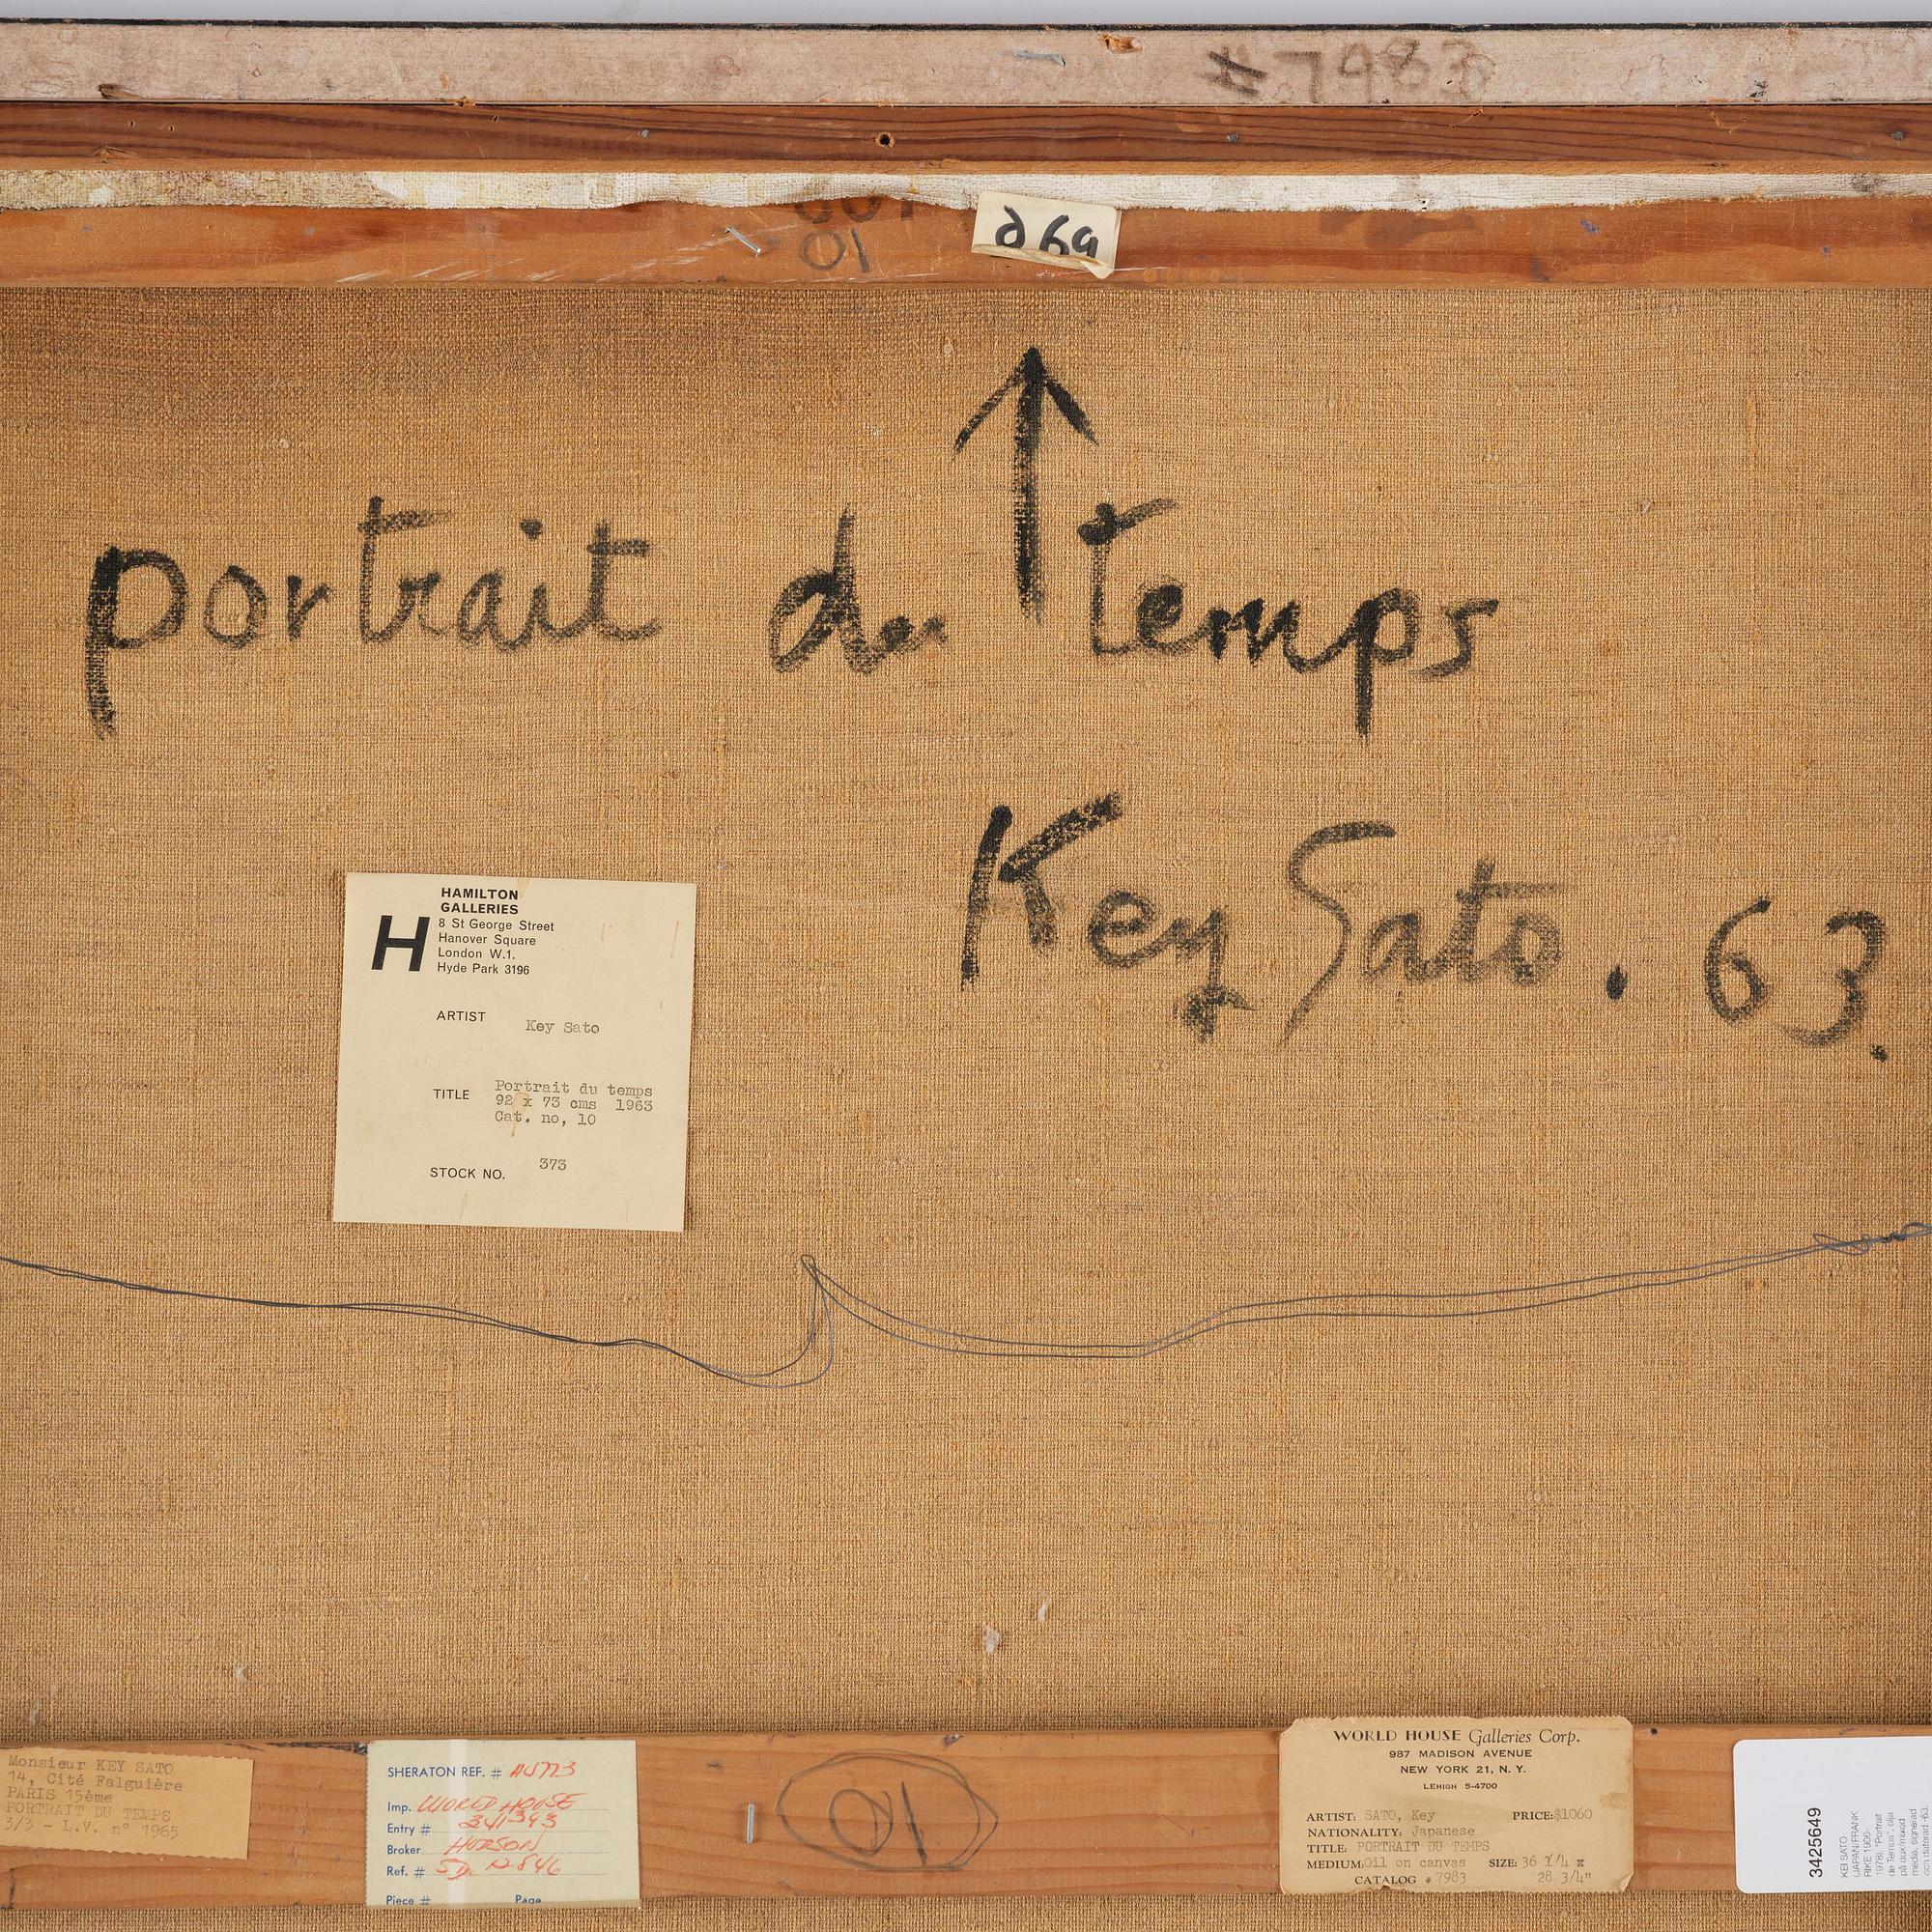 #7983
01
portrait du temps
Key Sato. 63.
HAMILTON
GALLERIES
H
8 St George Street
Hanover Square
London W.1.
Hyde Park 3196
ARTIST Key Sato
TITLE Portrait du temps
92 x 73 cms 1963
Cat. no, 10
STOCK NO. 373
Monsieur KEY SATO
14, Cité Falguière
PARIS 15ème
PORTRAIT DU TEMPS
3/3 - L.V. n° 1965
SHERATON REF. #
Imp. WORLD HOUSE
Entry # 341393
Broker HUDSON
Ref. # 12846
Piece # Page
WORLD HOUSE Galleries Corp.
987 MADISON AVENUE
NEW YORK 21, N. Y.
LEHIGH 5-4700
ARTIST: SATO, Key PRICE: $1060
NATIONALITY: Japanese
TITLE: PORTRAIT DU TEMPS
MEDIUM: Oil on canvas SIZE: 36 1/4 x
CATALOG # 7983 28 3/4"
3425649
KEI SATO
(JAPAN/FRANK
RIKE 1906-
1978). "Portrait
de Temps", olja
på duk/mixed
media, signerad
och daterad -63.